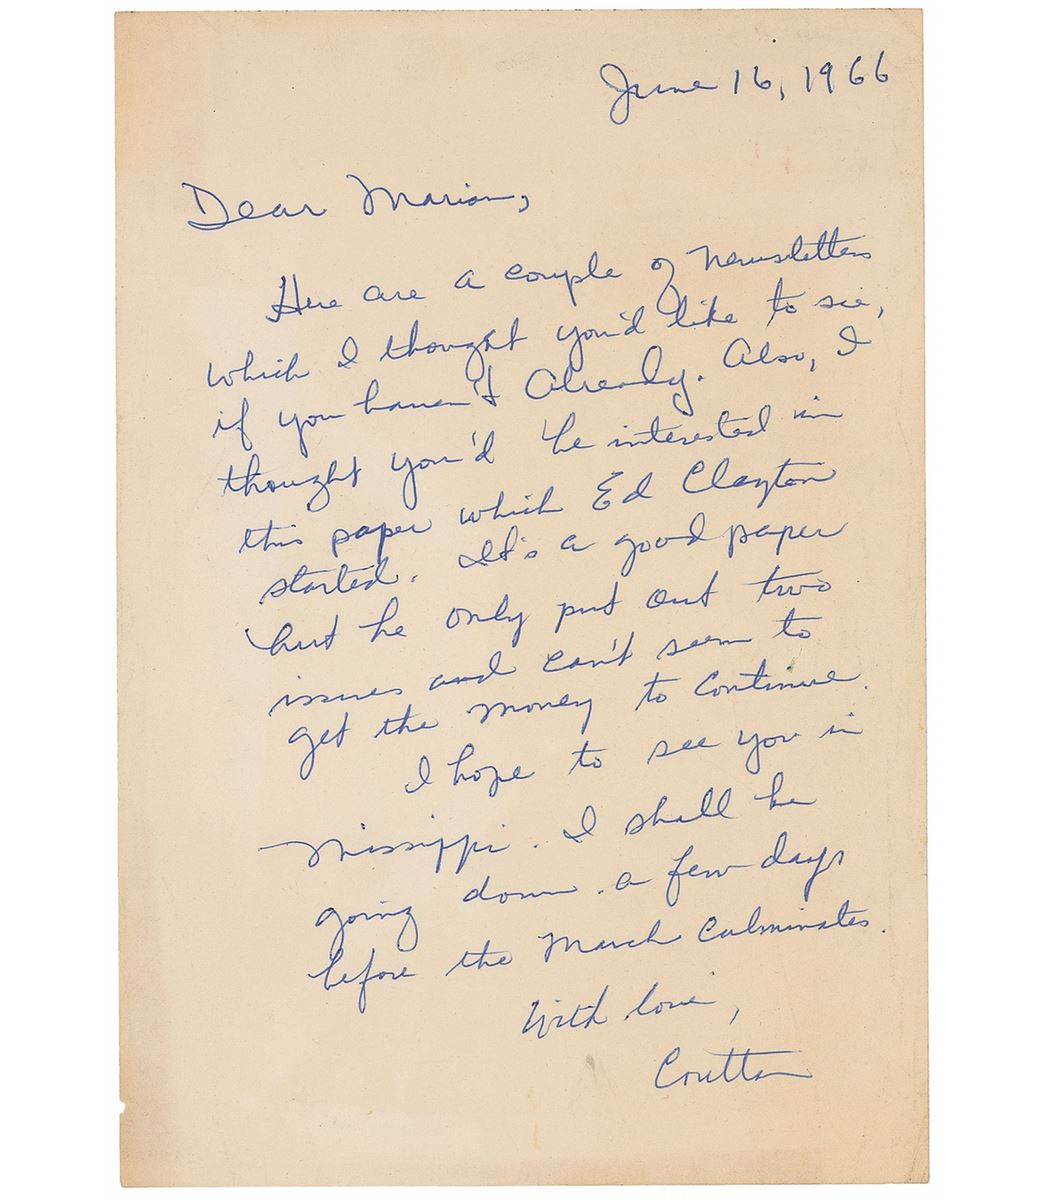 June 16, 1966
Dear Marian,
Here are a couple of newsletters
which I thought you'd like to see,
if you haven't already. Also, I
thought you'd be interested in
this paper which Ed Clayton
started. It's a good paper
but he only put out two
issues and can't seem to
get the money to continue.
I hope to see you in
Mississippi. I shall be
going down a few days
before the March culminates.
With love,
Coretta